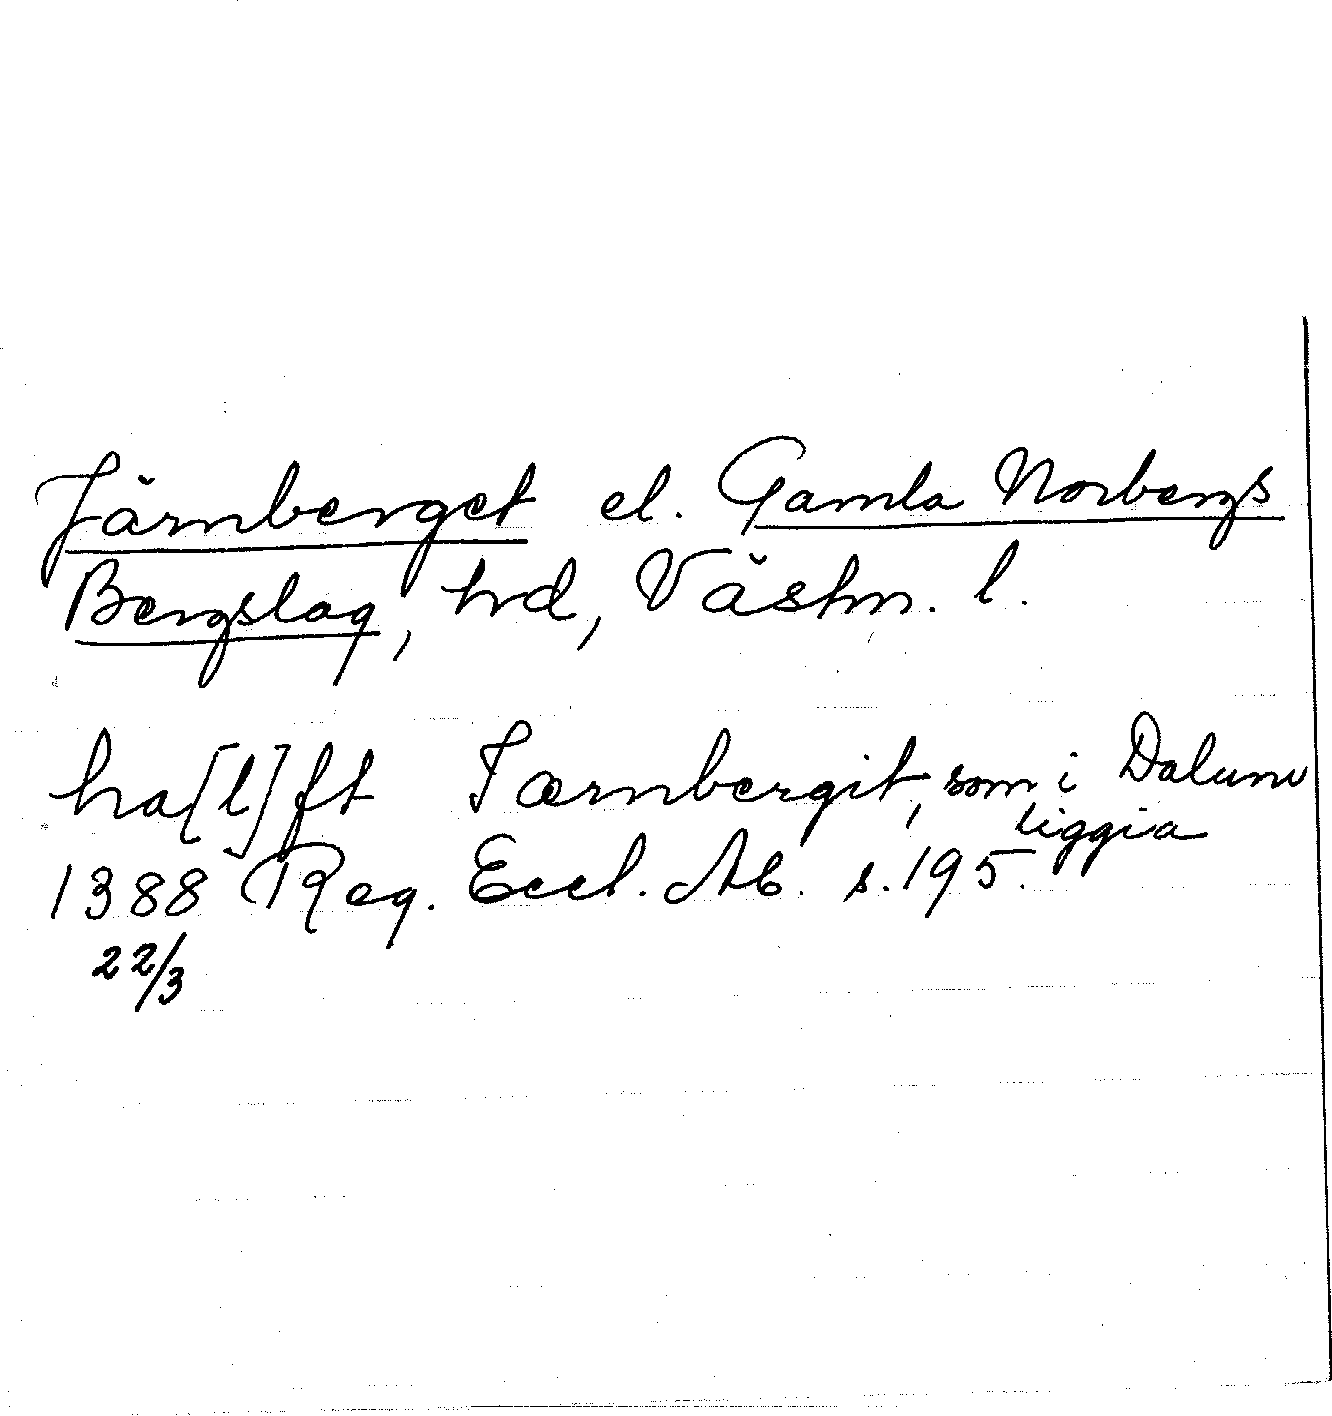 Järnberget el. Gamla Norbergs
Bergslag, hd, Västm. l.
ha[l]ft Iærnbergit, som i Dalum
liggia
1388 Reg. Eccl. Ab. s. 195.
22/3